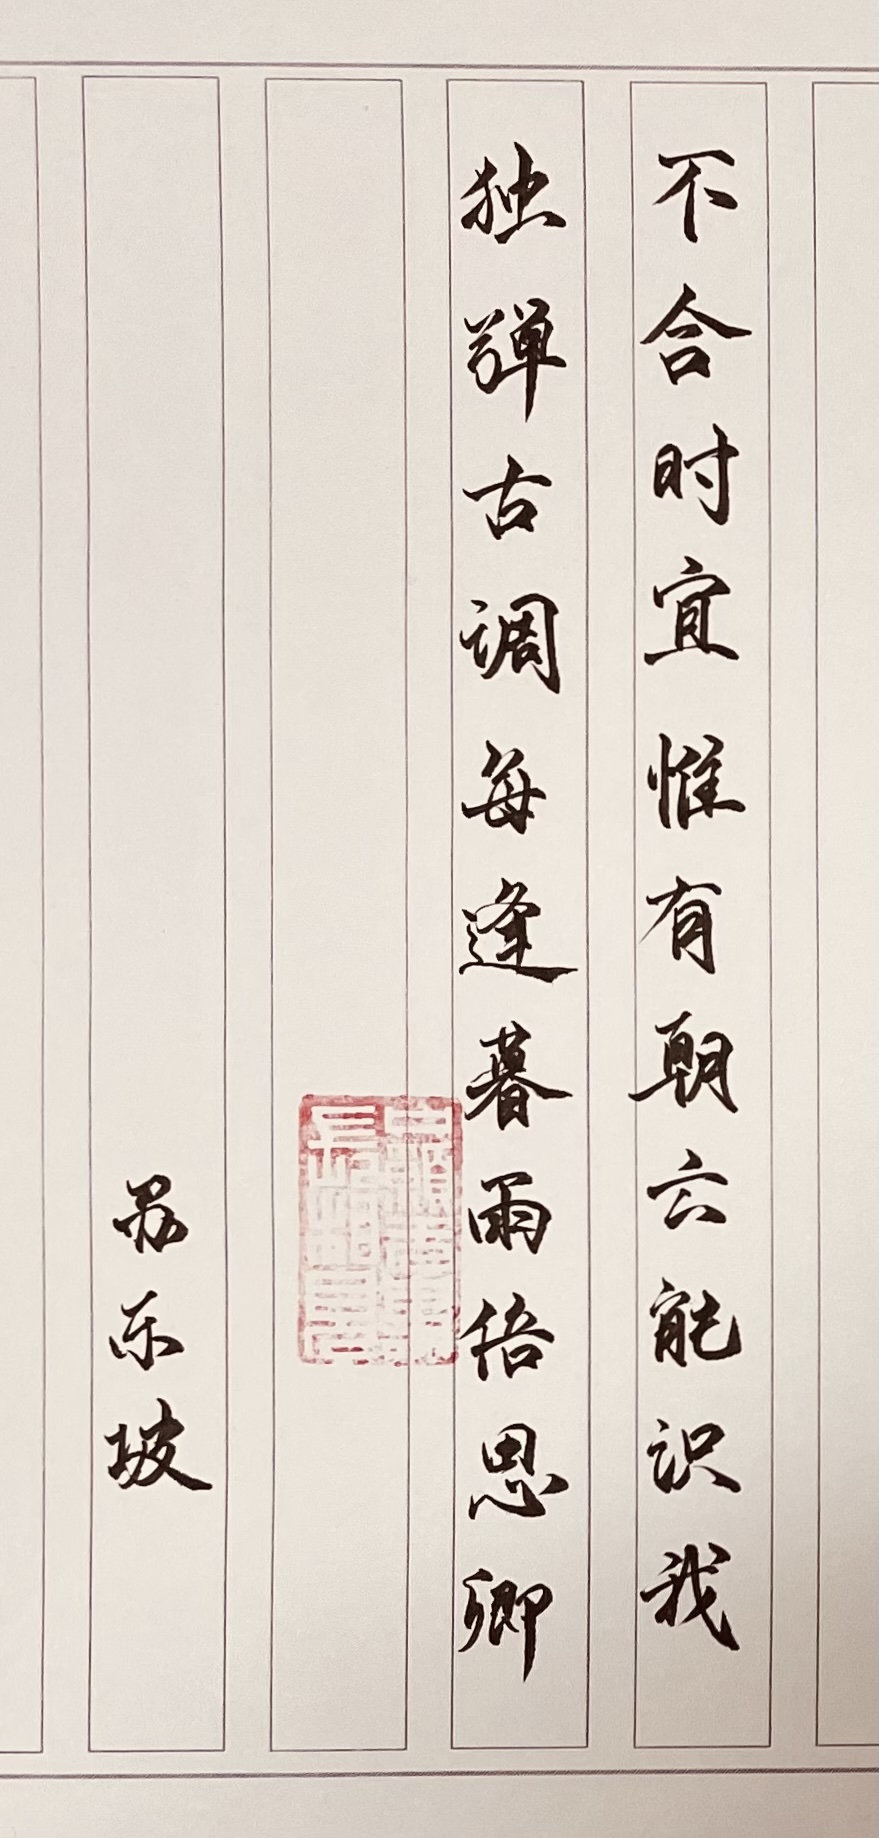 不合时宜惟有朝云能识我
独弹古调每逢暮雨倍思卿
苏东坡